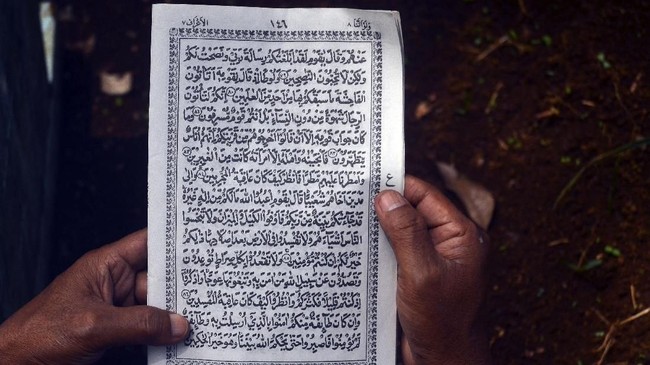 ولو اننا ٨ ١٤٦ الاعراف ٧
عَنْهُمْ وَقَالَ يٰقَوْمِ لَقَدْ اَبْلَغْتُكُمْ رِسَالَةَ رَبِّيْ وَنَصَحْتُ لَكُمْ
وَلٰكِنْ لَّا تُحِبُّوْنَ النّٰصِحِيْنَ ٧٩ وَلُوْطًا اِذْ قَالَ لِقَوْمِهٖٓ اَتَأْتُوْنَ
الْفَاحِشَةَ مَا سَبَقَكُمْ بِهَا مِنْ اَحَدٍ مِّنَ الْعٰلَمِيْنَ ٨٠ اِنَّكُمْ لَتَأْتُوْنَ
الرِّجَالَ شَهْوَةً مِّنْ دُوْنِ النِّسَآءِ بَلْ اَنْتُمْ قَوْمٌ مُّسْرِفُوْنَ ٨١ وَمَا
كَانَ جَوَابَ قَوْمِهٖٓ اِلَّآ اَنْ قَالُوْٓا اَخْرِجُوْهُمْ مِّنْ قَرْيَتِكُمْ اِنَّهُمْ اُنَاسٌ
يَّتَطَهَّرُوْنَ ٨٢ فَاَنْجَيْنٰهُ وَاَهْلَهٗٓ اِلَّا امْرَاَتَهٗ كَانَتْ مِنَ الْغٰبِرِيْنَ ٨٣
وَاَمْطَرْنَا عَلَيْهِمْ مَّطَرًا فَانْظُرْ كَيْفَ كَانَ عَاقِبَةُ الْمُجْرِمِيْنَ ٨٤ وَاِلٰى
ع
مَدْيَنَ اَخَاهُمْ شُعَيْبًا قَالَ يٰقَوْمِ اعْبُدُوا اللّٰهَ مَا لَكُمْ مِّنْ اِلٰهٍ غَيْرُهٗ
قَدْ جَآءَتْكُمْ بَيِّنَةٌ مِّنْ رَّبِّكُمْ فَاَوْفُوا الْكَيْلَ وَالْمِيْزَانَ وَلَا تَبْخَسُوا
النَّاسَ اَشْيَآءَهُمْ وَلَا تُفْسِدُوْا فِى الْاَرْضِ بَعْدَ اِصْلَاحِهَا ذٰلِكُمْ
خَيْرٌ لَّكُمْ اِنْ كُنْتُمْ مُّؤْمِنِيْنَ ٨٥ وَلَا تَقْعُدُوْا بِكُلِّ صِرَاطٍ تُوْعِدُوْنَ
وَتَصُدُّوْنَ عَنْ سَبِيْلِ اللّٰهِ مَنْ اٰمَنَ بِهٖ وَتَبْغُوْنَهَا عِوَجًا وَاذْكُرُوْٓا
اِذْ كُنْتُمْ قَلِيْلًا فَكَثَّرَكُمْ وَانْظُرُوْا كَيْفَ كَانَ عَاقِبَةُ الْمُفْسِدِيْنَ ٨٦
وَاِنْ كَانَ طَآئِفَةٌ مِّنْكُمْ اٰمَنُوْا بِالَّذِيْٓ اُرْسِلْتُ بِهٖ وَطَآئِفَةٌ
لَّمْ يُؤْمِنُوْا فَاصْبِرُوْا حَتّٰى يَحْكُمَ اللّٰهُ بَيْنَنَا وَهُوَ خَيْرُ الْحٰكِمِيْنَ